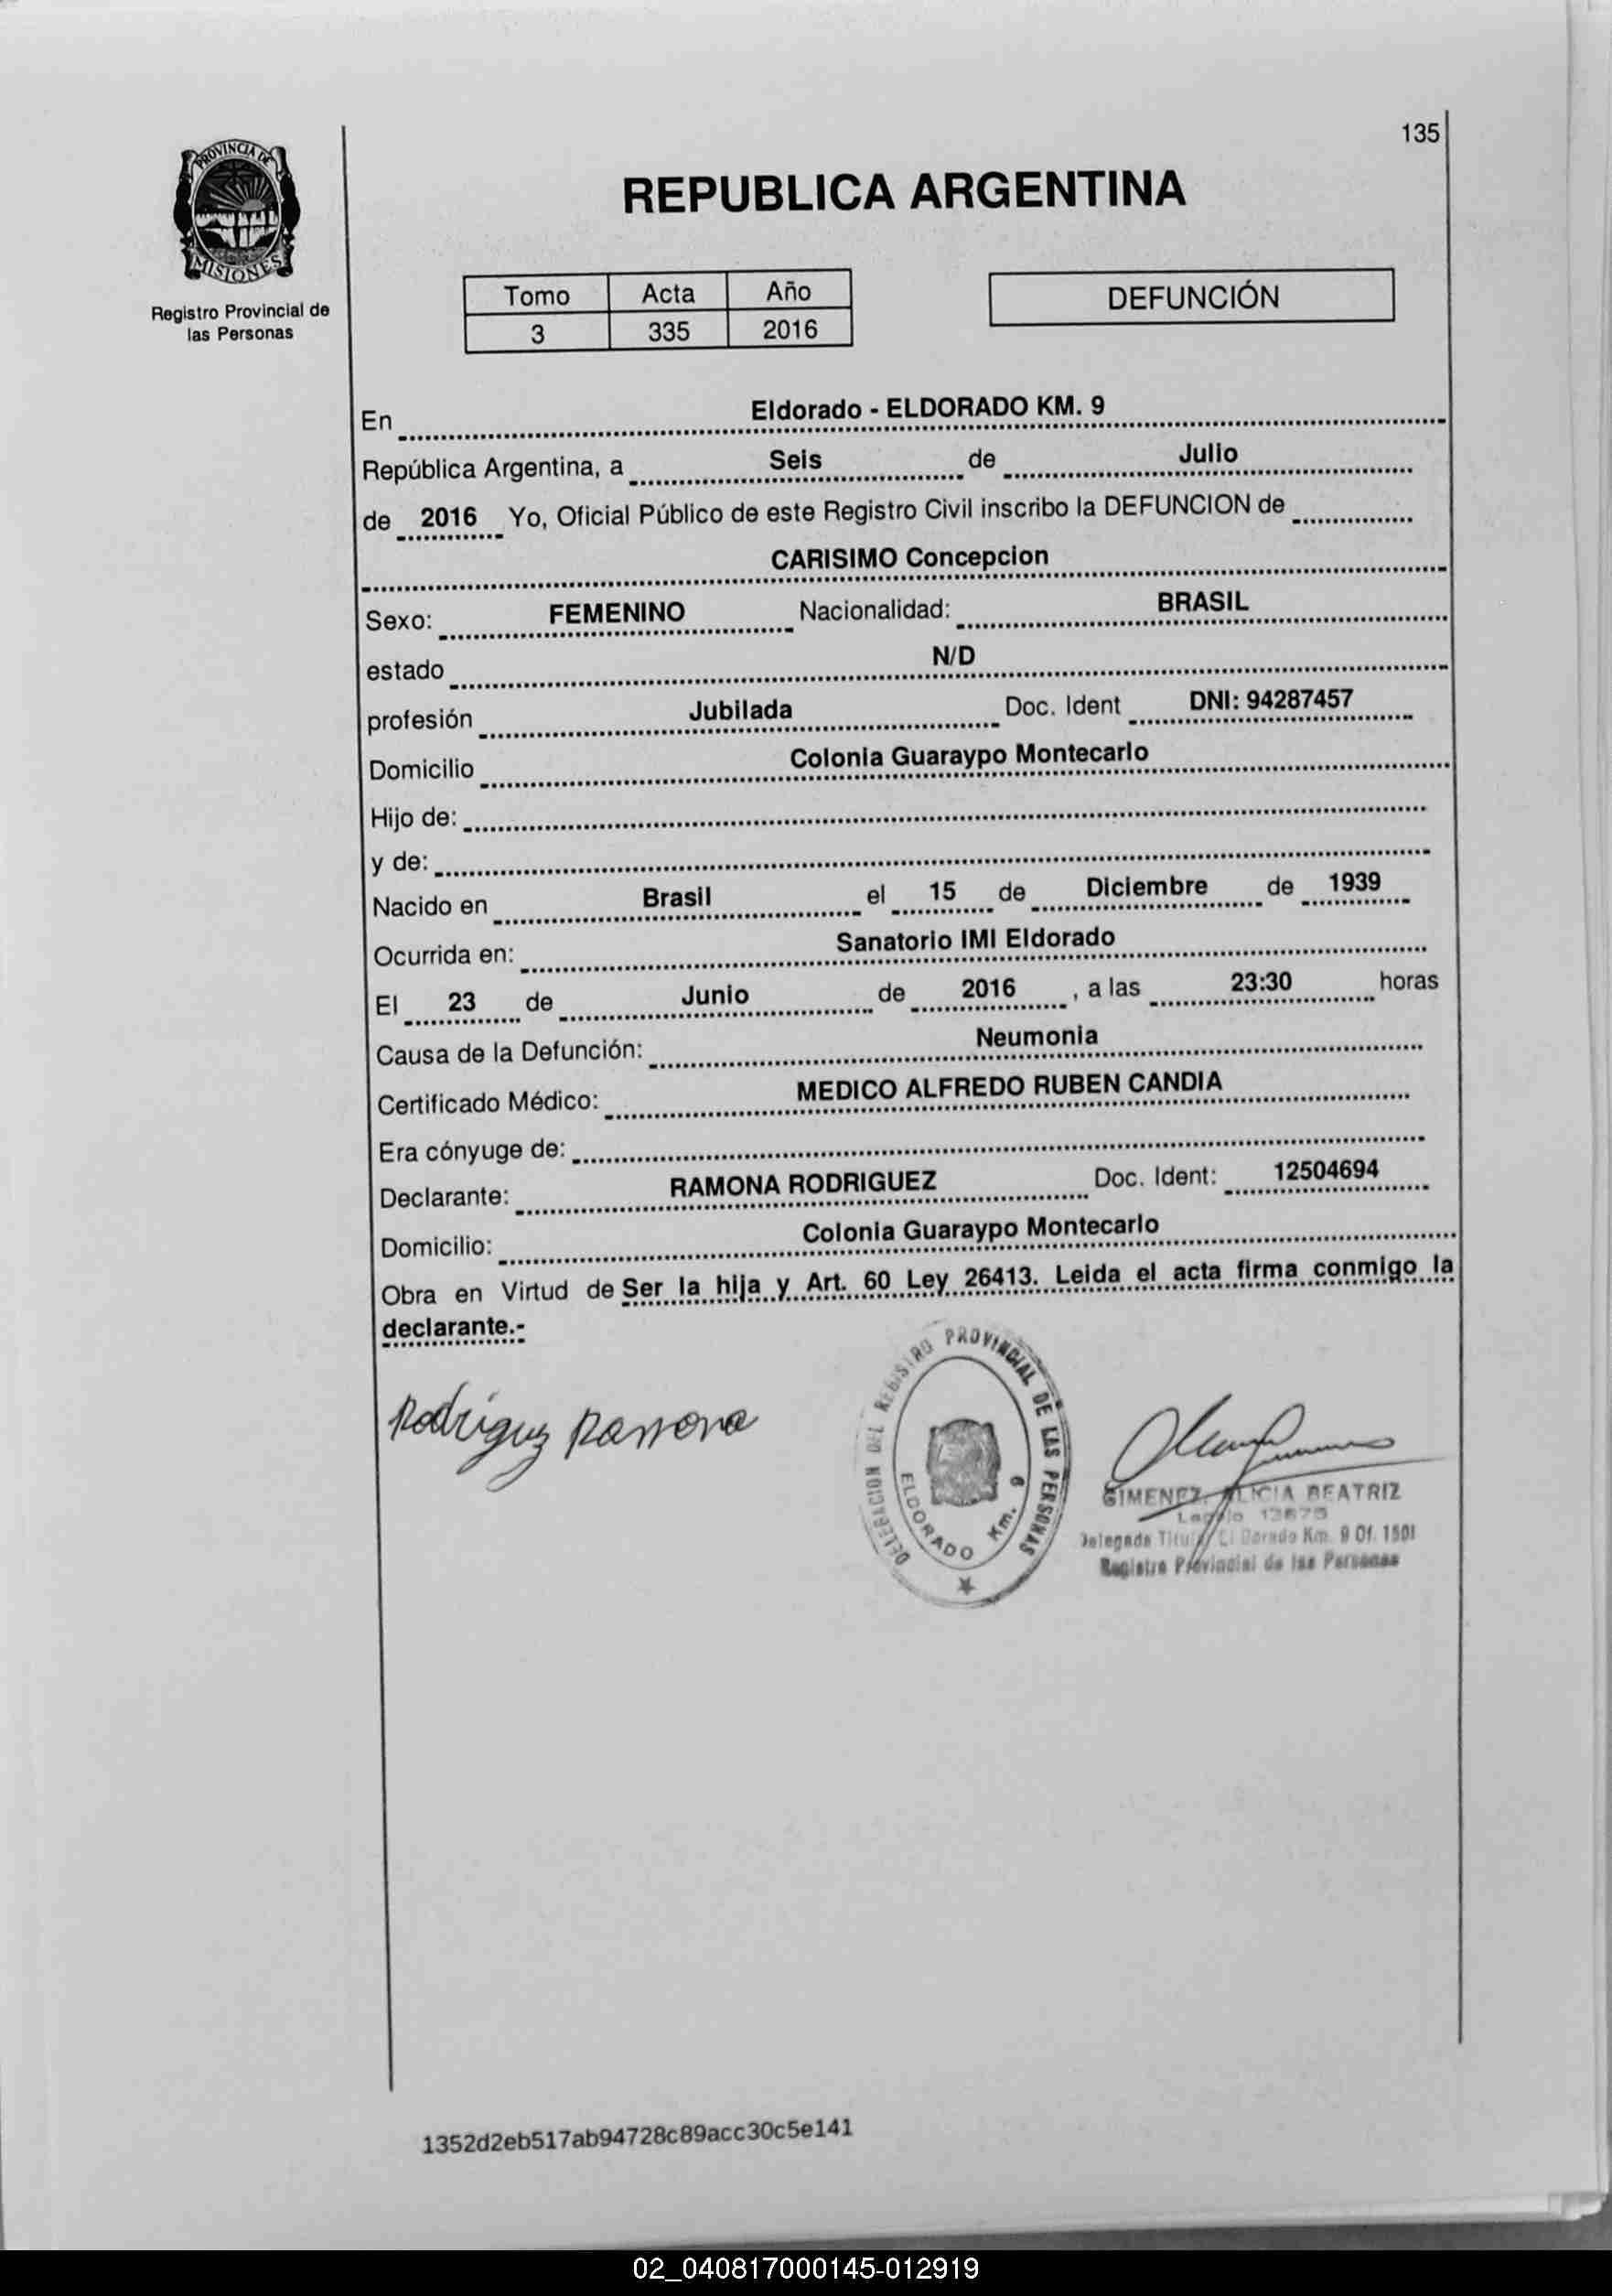 135
PROVINCIA DE
MISIONES
Registro Provincial de
las Personas
REPUBLICA ARGENTINA
Tomo Acta Año
3 335 2016
DEFUNCIÓN
En Eldorado - ELDORADO KM. 9
República Argentina, a Seis de Julio
de 2016 Yo, Oficial Público de este Registro Civil inscribo la DEFUNCION de
CARISIMO Concepcion
Sexo: FEMENINO Nacionalidad: BRASIL
estado N/D
profesión Jubilada Doc. Ident DNI: 94287457
Domicilio Colonia Guaraypo Montecarlo
Hijo de:
y de:
Nacido en Brasil el 15 de Diciembre de 1939
Ocurrida en: Sanatorio IMI Eldorado
El 23 de Junio de 2016 , a las 23:30 horas
Causa de la Defunción: Neumonia
Certificado Médico: MEDICO ALFREDO RUBEN CANDIA
Era cónyuge de:
Declarante: RAMONA RODRIGUEZ Doc. Ident: 12504694
Domicilio: Colonia Guaraypo Montecarlo
Obra en Virtud de Ser la hija y Art. 60 Ley 26413. Leida el acta firma conmigo la
declarante.-
Rodriguez Ramona
DELEGACION DEL REGISTRO PROVINCIAL DE LAS PERSONAS
ELDORADO Km. 9
GIMENEZ, ALICIA BEATRIZ
Legajo
Delegada Titular El Dorado Km. 9 Of. 1501
Registro Provincial de las Personas
1352d2eb517ab94728c89acc30c5e141
02_040817000145-012919